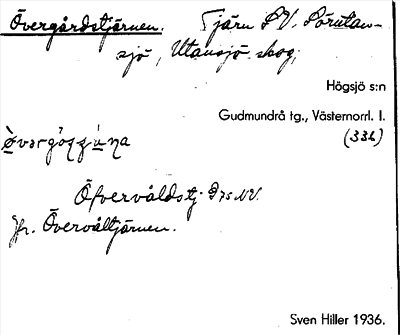 Övergårdstjärnen. Tjärn S.V. Sörutan-
sjö, Utansjö skog,
Högsjö s:n
Gudmundrå tg., Västernorrl. l.
(336)
Öfvervåldstj. D 75 NV.
Jfr. Överváltjärnen.
Sven Hiller 1936.